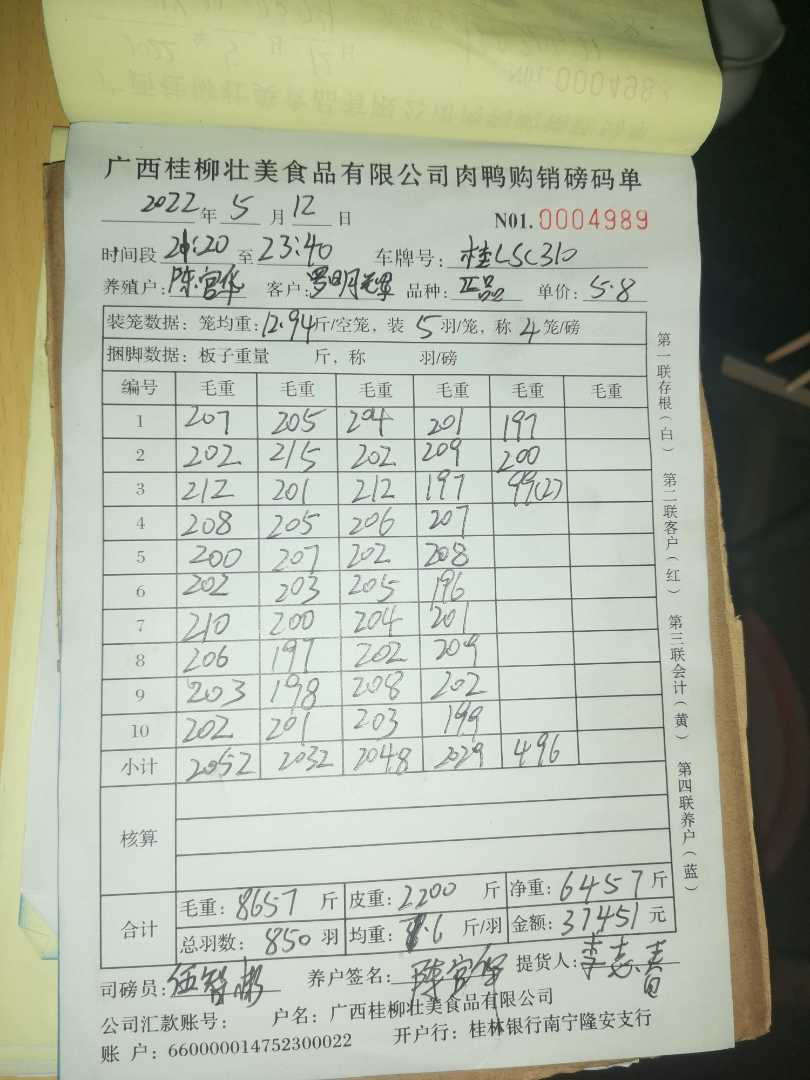 广西桂柳壮美食品有限公司肉鸭购销磅码单
2022 年 5 月 12 日 N01. 0004989
时间段 21:20 至 23:40 车牌号: 桂LSC310
养殖户: 陈宫华 客户: 罗明 品种: 正品 单价: 5.8
装笼数据: 笼均重: 12.94 斤/空笼, 装 5 羽/笼, 称 4 笼/磅
捆脚数据: 板子重量 斤, 称 羽/磅
编号 毛重 毛重 毛重 毛重 毛重 毛重
1 207 205 204 201 197
2 202 215 202 209 200
3 212 201 212 197 99(2)
4 208 205 206 207
5 200 207 202 208
6 202 203 205 196
7 210 200 204 201
8 206 197 202 209
9 203 198 208 202
10 202 201 203 199
小计 2052 2032 2048 2029 496
核算
合计
毛重: 8657 斤 皮重: 2200 斤 净重: 6457 斤
总羽数: 850 羽 均重: 7.6 斤/羽 金额: 37451 元
司磅员: 养户签名: 陈宫华 提货人: 李志
公司汇款账号: 户名: 广西桂柳壮美食品有限公司
账 户: 660000014752300022 开户行: 桂林银行南宁隆安支行
第一联存根(白) 第二联客户(红) 第三联会计(黄) 第四联养户(蓝)